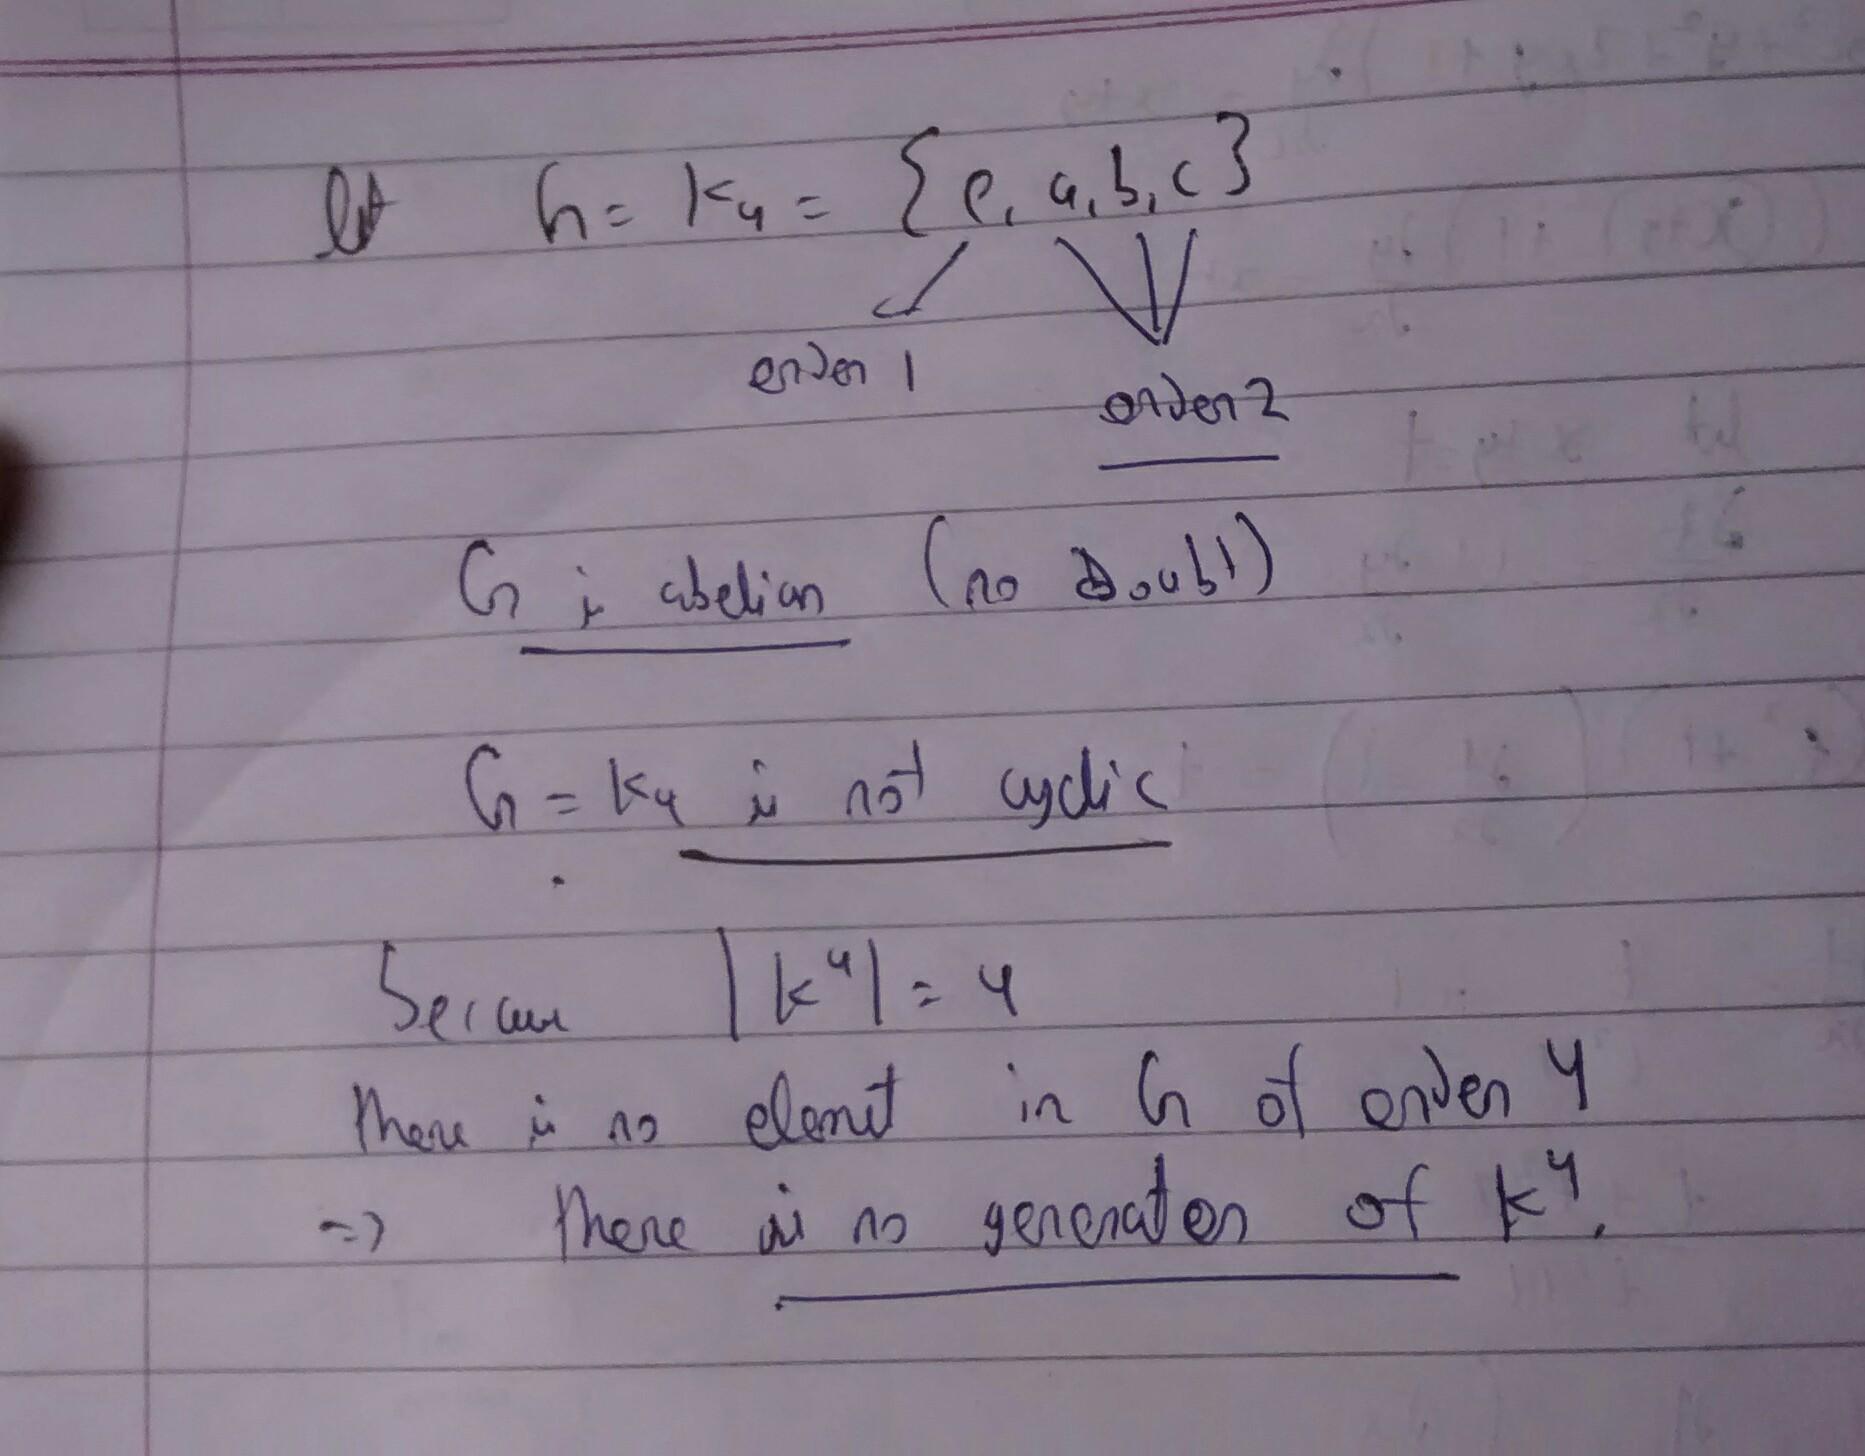 let G = K4 = {e, a, b, c}
order 1
order 2
G is abelian (no Doubt)
G = K4 is not cyclic
because |K^4| = 4
there is no elemet in G of order 4
=> there is no generator of K^4.